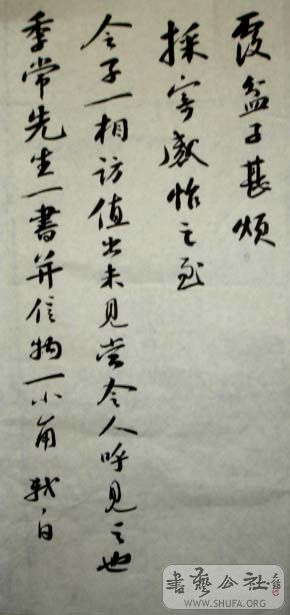 覆盆子甚烦
採寄感怍之至
令子一相访值出未见当令人呼见之也
季常先生一書并信物一小角 轼白
書藝公社
WWW.SHUFA.ORG